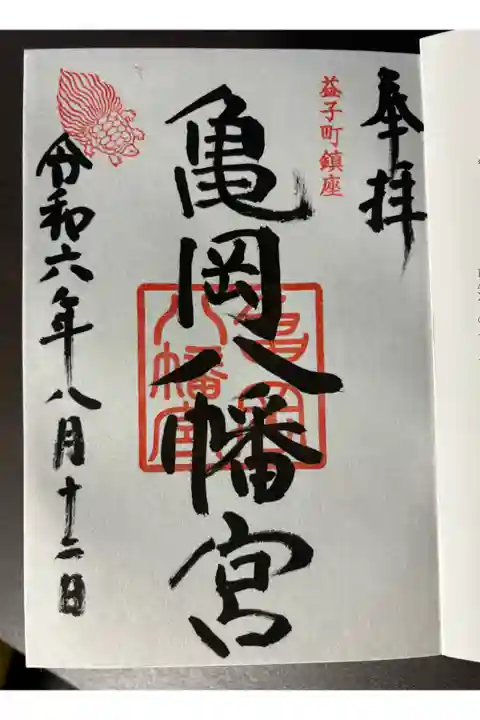 奉拝
益子町鎮座
亀岡八幡宮
亀岡八幡宮
令和六年八月十二日